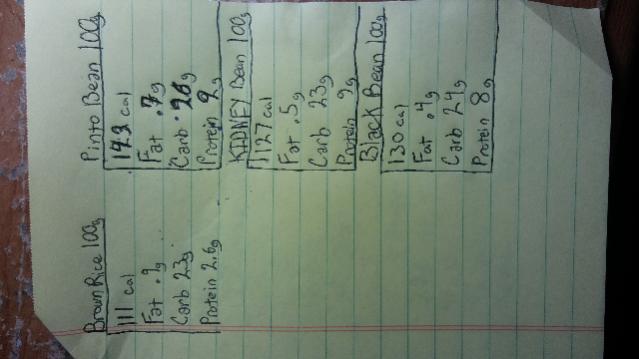 Brown Rice 100g
111 cal
Fat .9g
Carb 23g
Protein 2.6g
Pinto Bean 100g
cal
Fat .7g
Carb .26g
Protein 9g
KIDNEY Bean 100g
127 cal
Fat .5g
Carb 23g
Protein 9g
Black Bean 100g
130 cal
Fat .4g
Carb 24g
Protein 8g